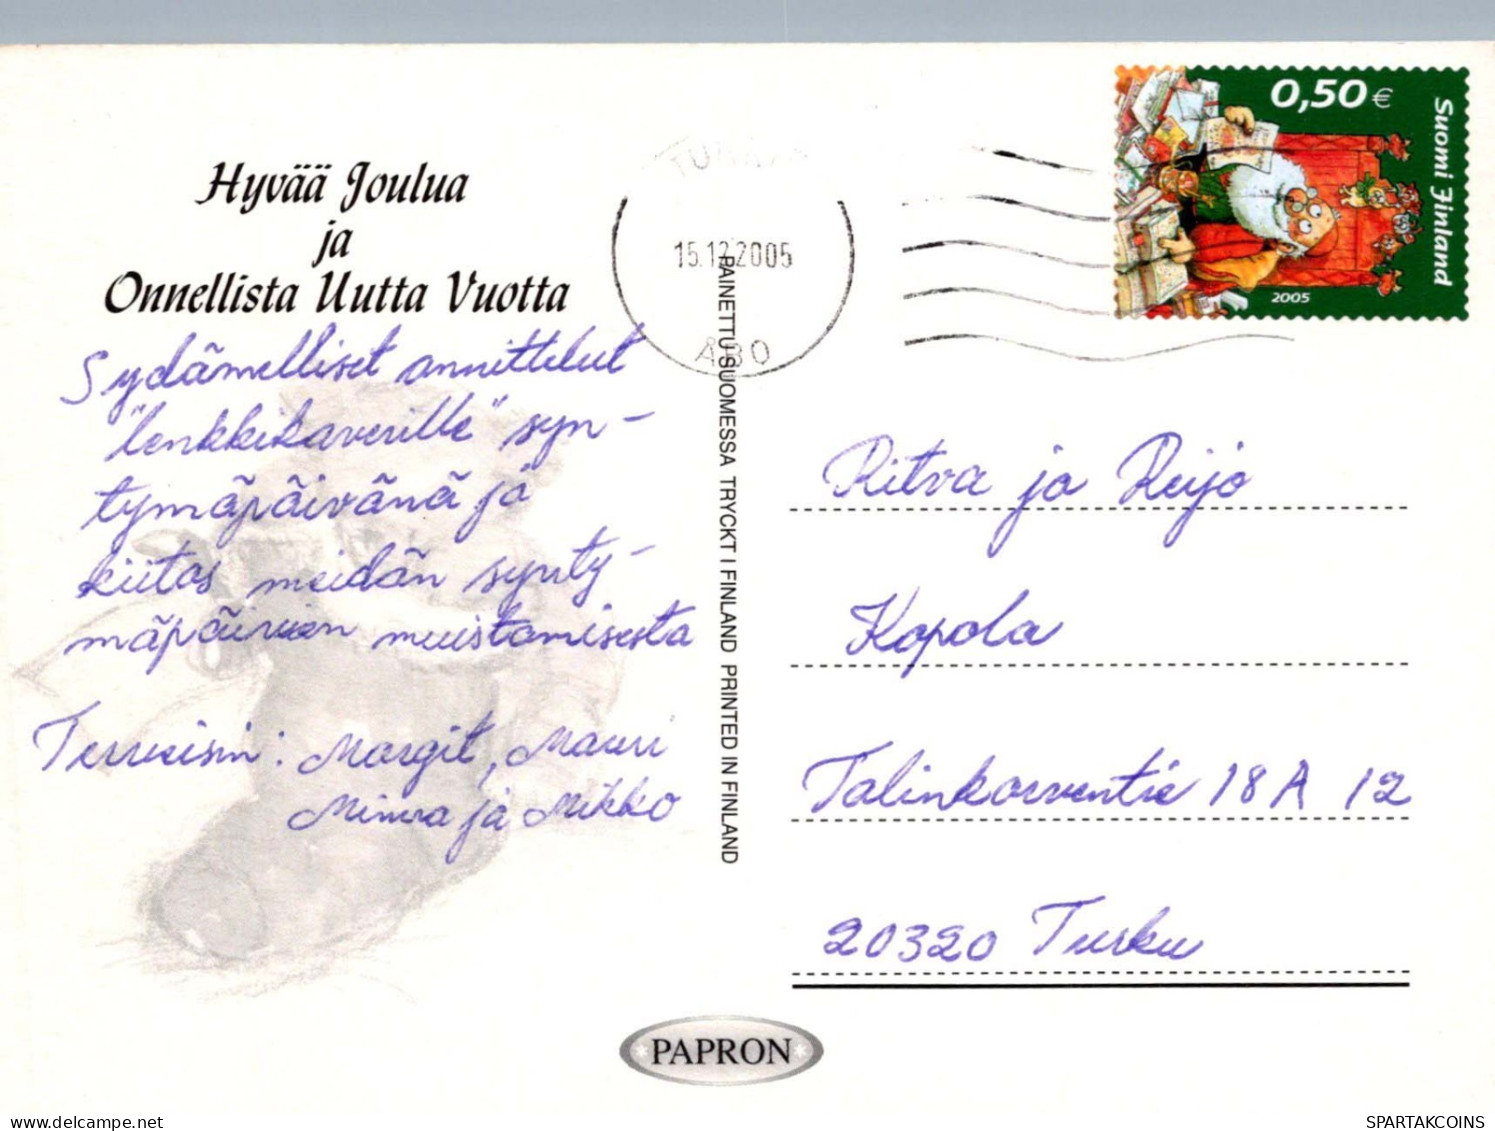 Hyvää Joulua
ja
Onnellista Uutta Vuotta
Sydämelliset onnittelut
"lenkkikaverille" syn-
tymäpäivänä ja
kiitos meidän synty-
mäpäivien muistamisesta
Terveisin: Margit, Mauri
Minna ja Mikko
15.12.2005
ÅBO
0,50 €
Suomi Finland
2005
PAINETTU SUOMESSA TRYCKT I FINLAND PRINTED IN FINLAND
Ritva ja Reijo
Kopola
Talinkorventie 18 A 12
20320 Turku
PAPRON
delcampe.net
SPARTAKCOINS